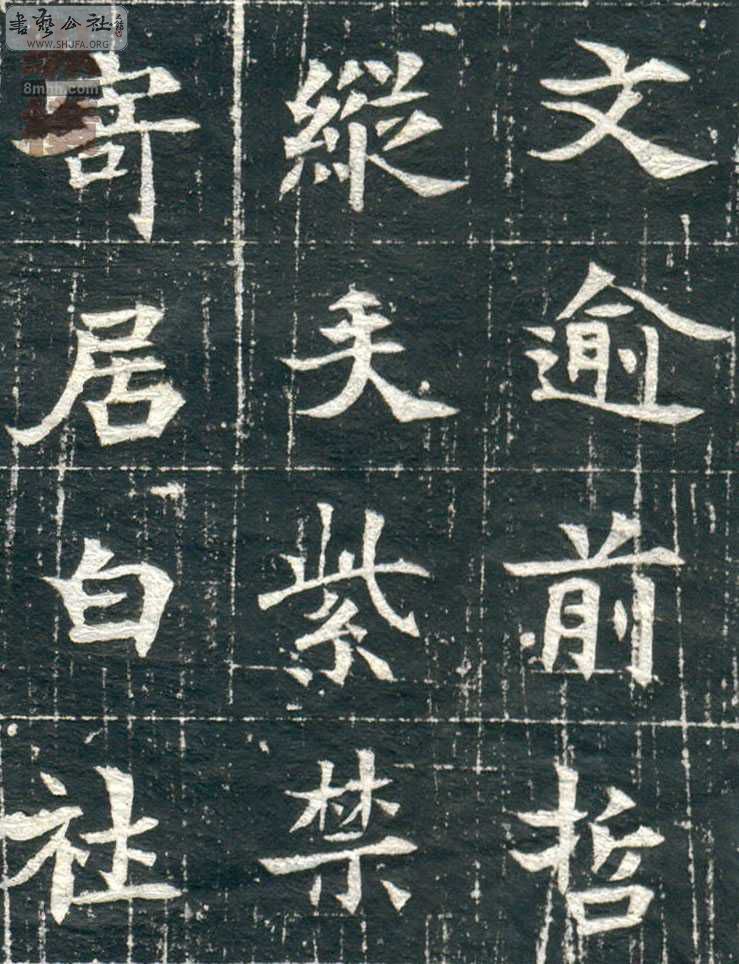 文逾前哲
縱失紫禁
寄居白社
書藝公社
WWW.SHUFA.ORG
8mhh.com